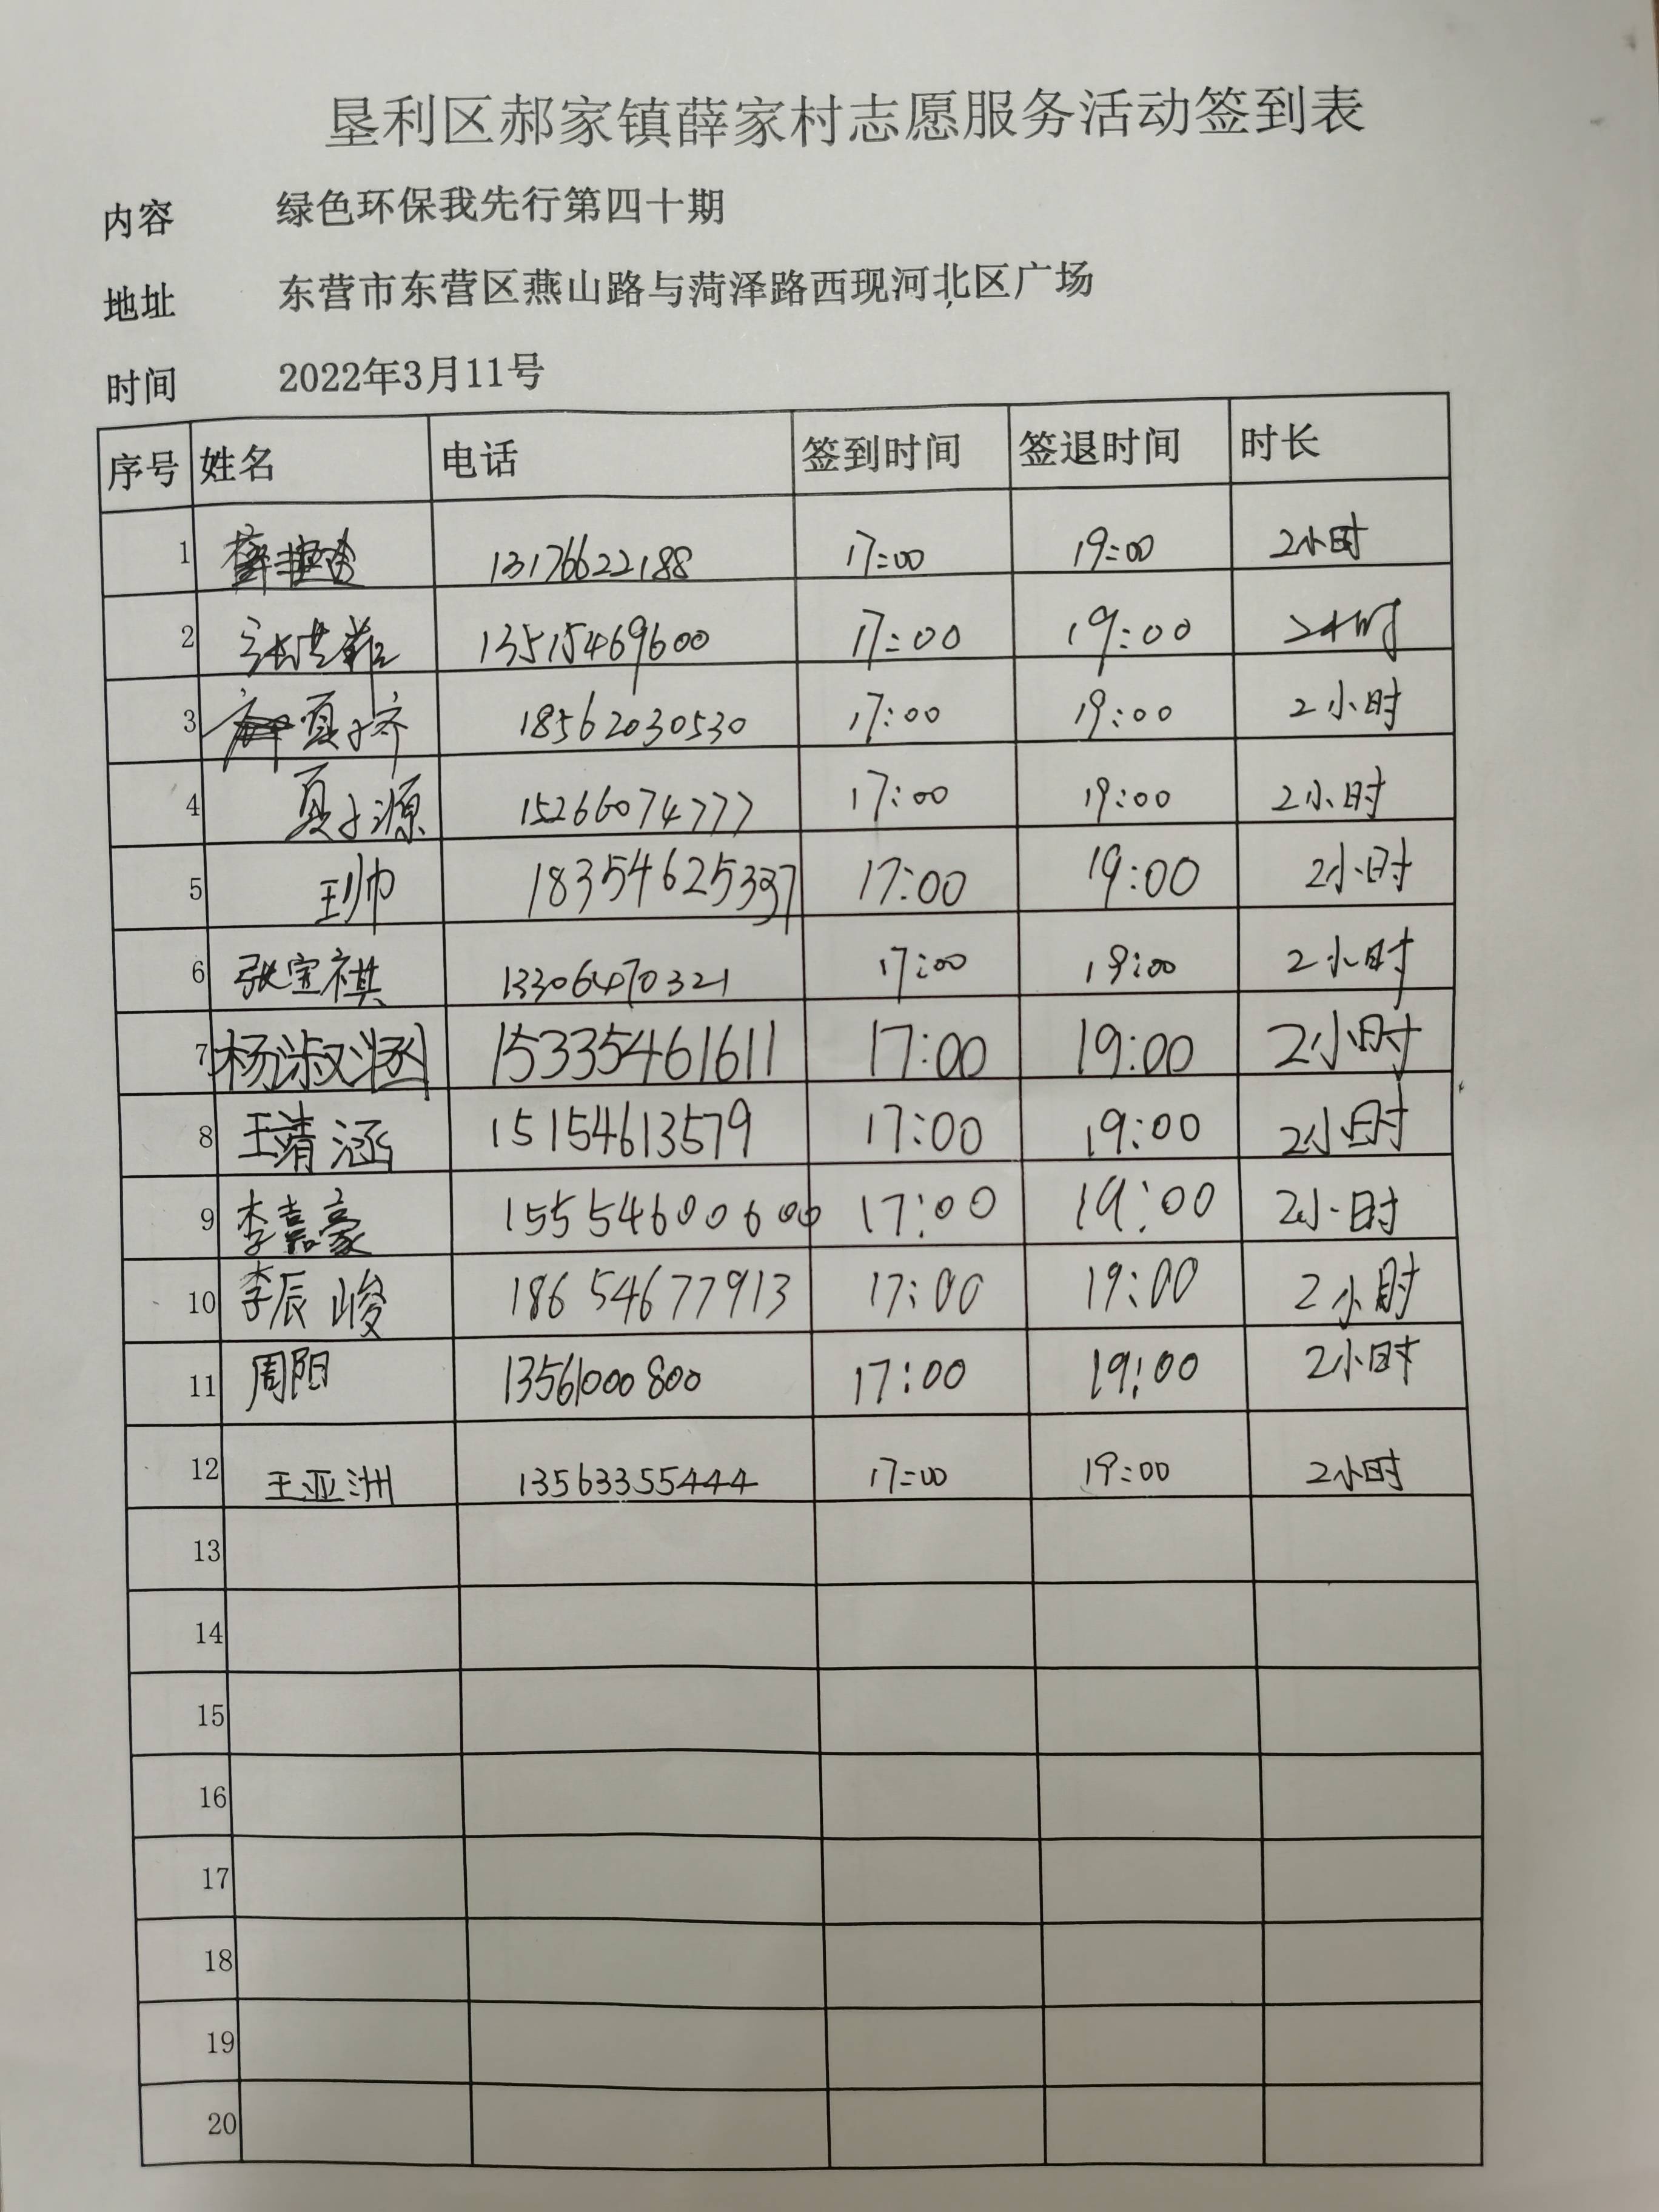 垦利区郝家镇薛家村志愿服务活动签到表
内容 绿色环保我先行第四十期
地址 东营市东营区燕山路与菏泽路西现河北区广场
时间 2022年3月11号
序号 姓名 电话 签到时间 签退时间 时长
1 13176622188 17:00 19:00 2小时
2 13515469600 17:00 19:00 2小时
3 夏子齐 18562030530 17:00 19:00 2小时
4 夏子源 15266074777 17:00 19:00 2小时
5 王帅 18354625337 17:00 19:00 2小时
6 张宝祺 13306470321 17:00 19:00 2小时
7 杨淑涵 15335461611 17:00 19:00 2小时
8 王靖涵 15154613579 17:00 19:00 2小时
9 李嘉豪 15554600600 17:00 19:00 2小时
10 李辰峻 18654677913 17:00 19:00 2小时
11 周阳 13561000800 17:00 19:00 2小时
12 王亚洲 13563355444 17:00 19:00 2小时
13
14
15
16
17
18
19
20